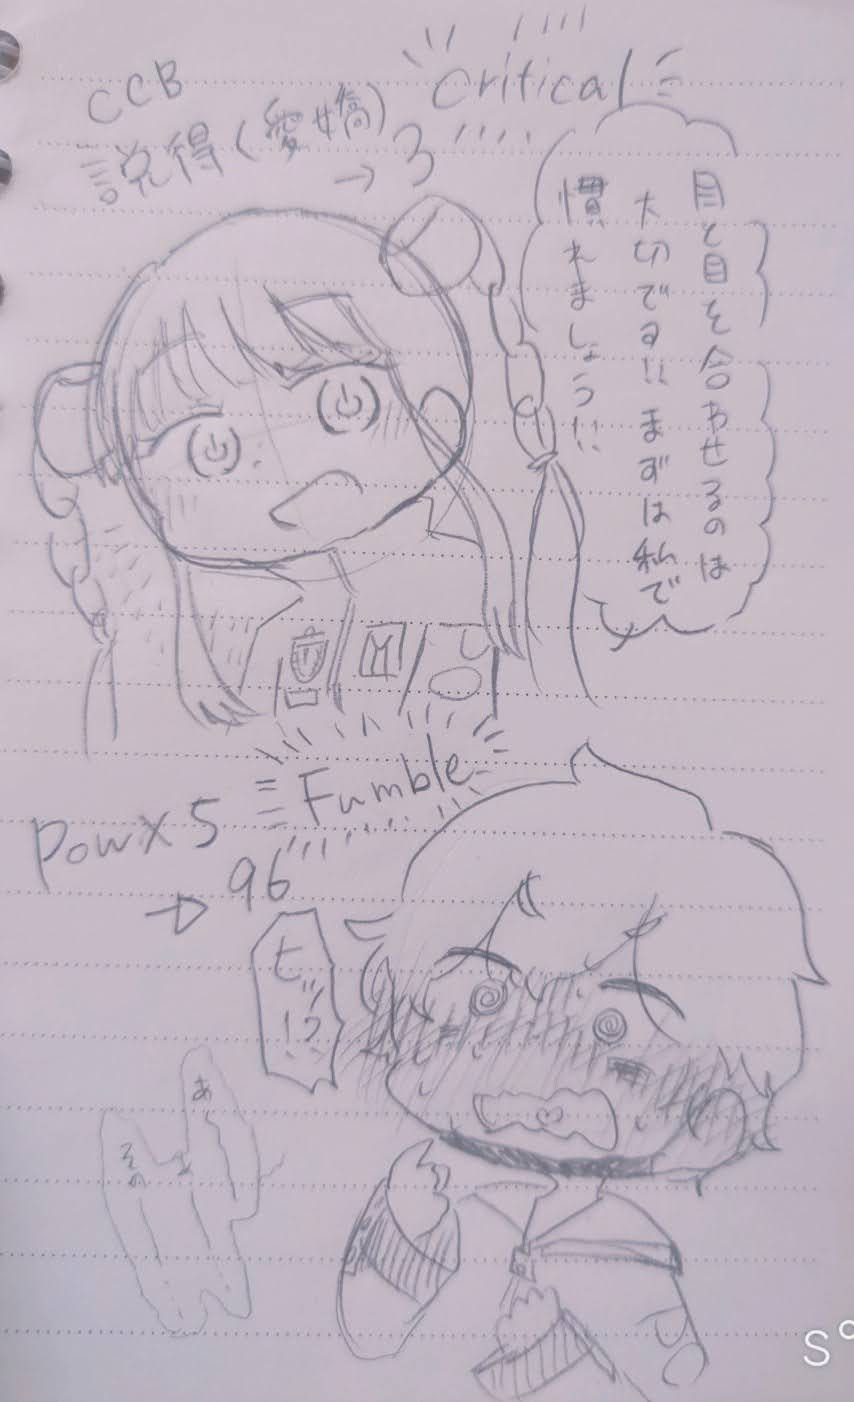 CCB
説得(愛嬌)
→ 3
Critical
目と目を合わせるのは
大切です!!まずは私で
慣れましょう!!
Fumble
POW×5
→ 96
ヒッ!?
あ
その
S